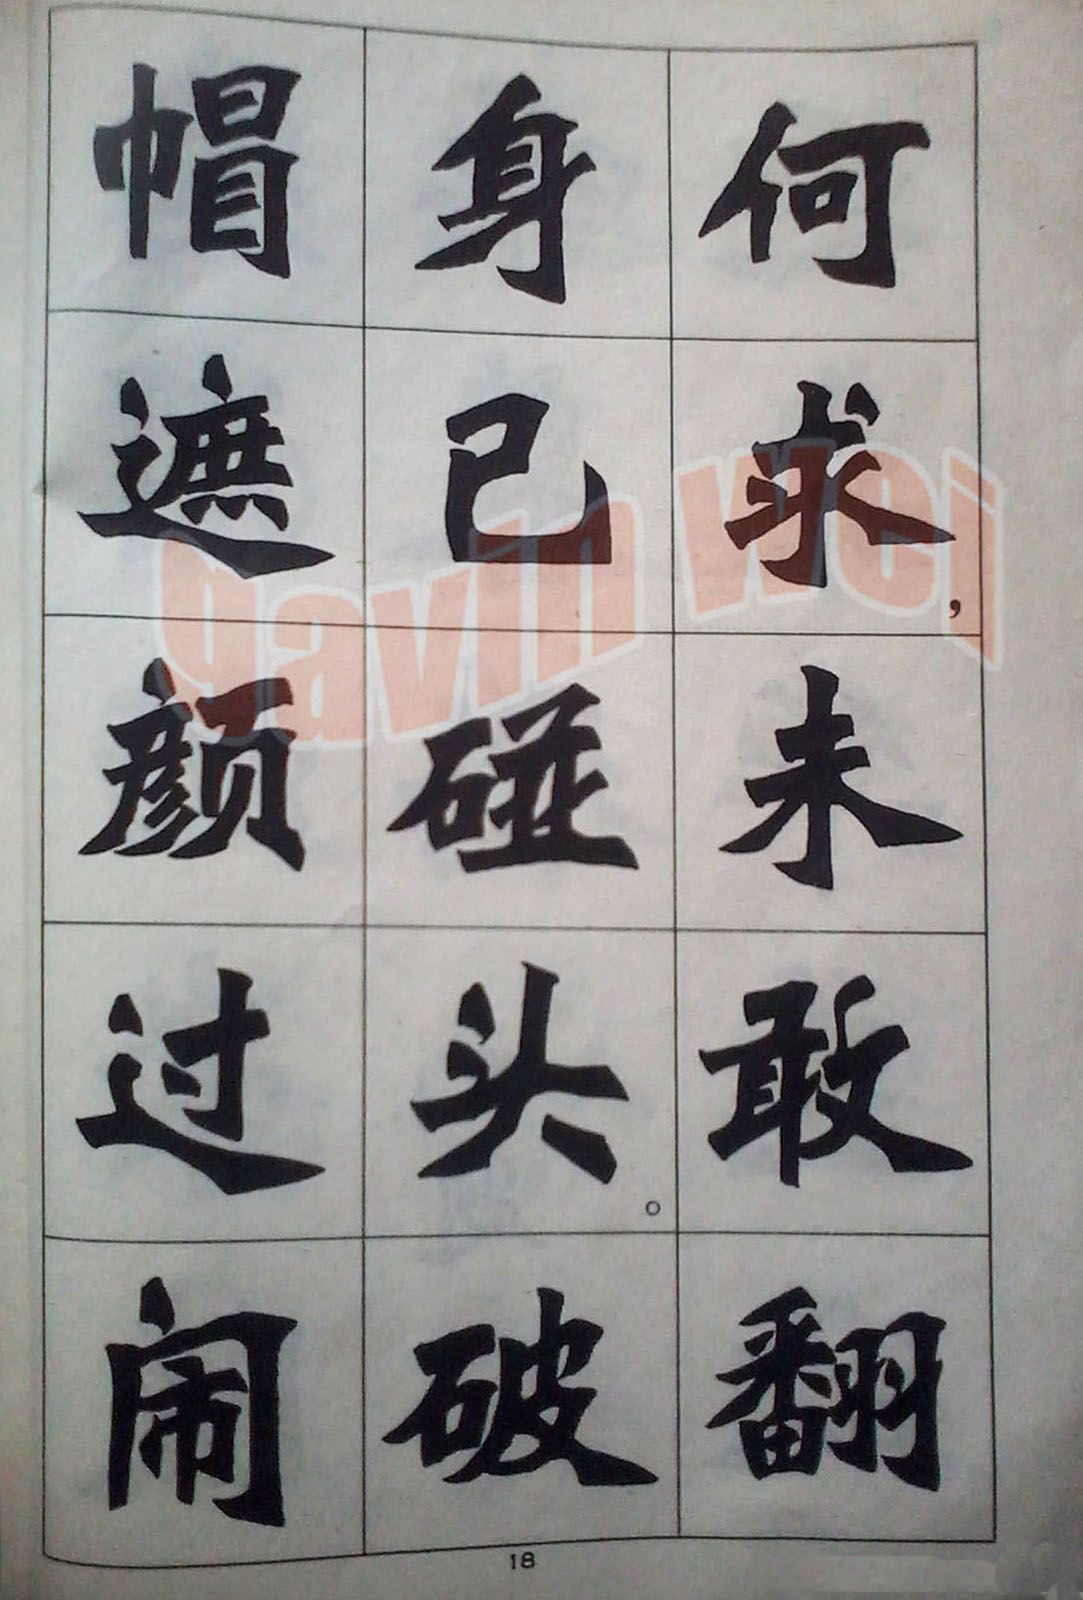 何求,未敢翻
身已碰头。破
帽遮颜过闹
18
gavin wei